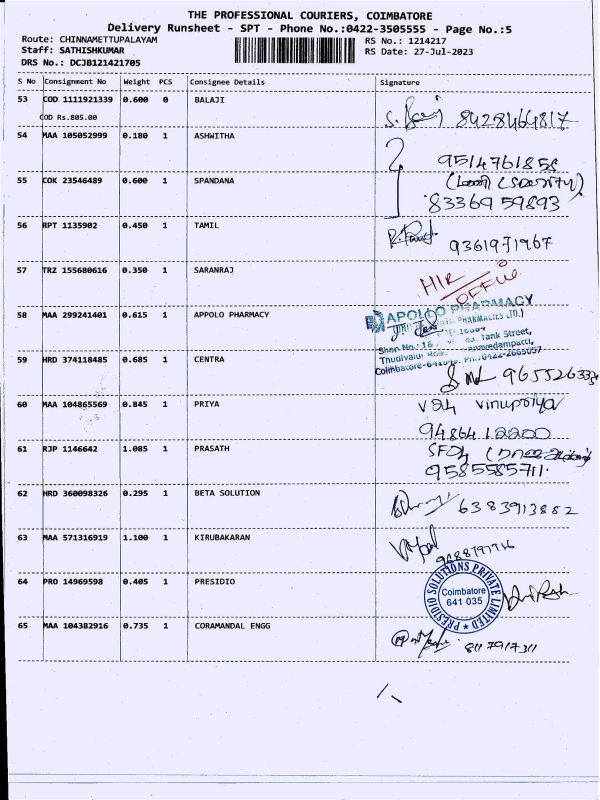 THE PROFESSIONAL COURIERS, COIMBATORE
Delivery Runsheet - SPT - Phone No.:0422-3505555 - Page No.:5
Route: CHINNAMETTUPALAYAM RS No.: 1214217
Staff: SATHISHKUMAR RS Date: 27-Jul-2023
DRS No.: DCJB121421705
S No Consignment No Weight PCS Consignee Details Signature
53 COD 1111921339 0.600 0 BALAJI
COD Rs.805.00
8428464817
54 MAA 105052999 0.180 1 ASHWITHA
9514761858
55 COK 23546489 0.600 1 SPANDANA
8336959893
56 RPT 1135902 0.450 1 TAMIL
9361971967
57 TRZ 155680616 0.350 1 SARANRAJ
HIR OFFICE
58 MAA 299241401 0.615 1 APPOLO PHARMACY
APOLLO PHARMACY
Shop No.: 16 Tank Street,
Coimbatore Ph.:0422-2665057
59 HRD 374118485 0.685 1 CENTRA
60 MAA 104865569 0.845 1 PRIYA
vinupriya
9486412200
61 RJP 1146642 1.085 1 PRASATH
9585585711.
62 HRD 360098326 0.295 1 BETA SOLUTION
6383913882
63 MAA 571316919 1.100 1 KIRUBAKARAN
64 PRO 14969598 0.405 1 PRESIDIO
PRESIDIO SOLUTIONS PRIVATE LIMITED
Coimbatore
641 035
65 MAA 104382916 0.735 1 CORAMANDAL ENGG
8117917311